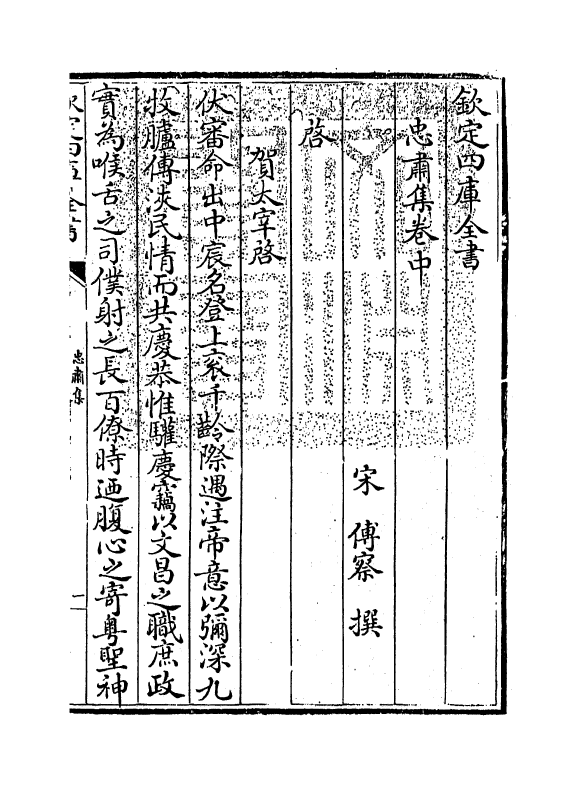 欽定四庫全書
忠肅集卷中
宋 傅察 撰
啓
賀太宰啓
伏審命出中宸名登上衮千齡際遇注帝意以彌深九
牧臚傳浹民情而共慶恭惟驩慶竊以文昌之職庶政
實為喉舌之司僕射之長百僚時迺腹心之寄粵聖神
忠肅集
一